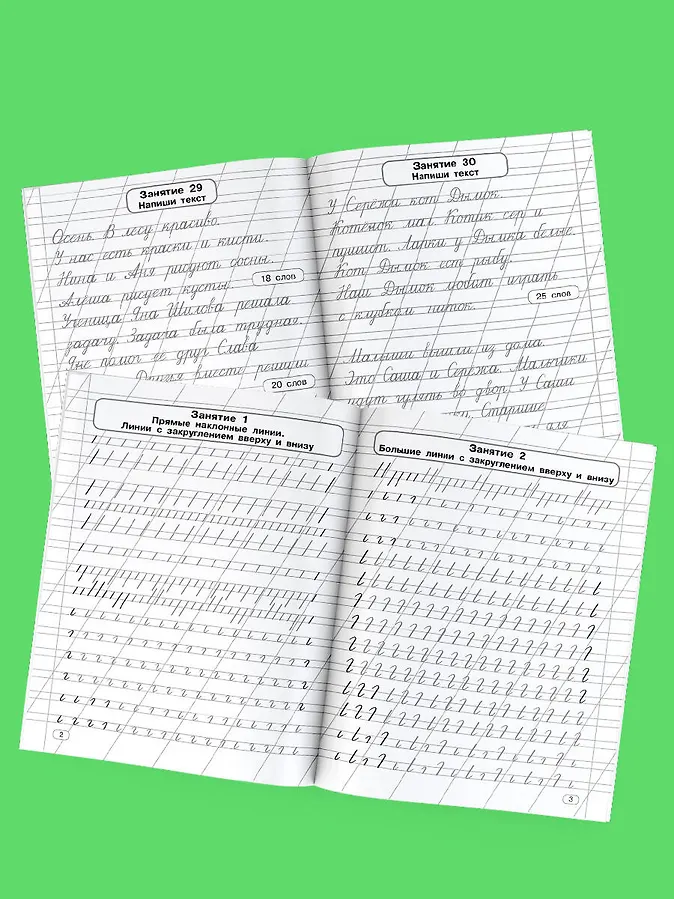 Занятие 29
Напиши текст
Осень. В лесу красиво.
У нас есть краски и кисти.
Нина и Аня рисуют сосны.
Алёша рисует кусты.
18 слов
Ученица Яна Шилова решала
задачу. Задача была трудная.
Яне помог её друг Слава
Друзья вместе решили
20 слов
Занятие 30
Напиши текст
У Серёжи кот Дымок.
Котёнок мал. Котик сер и
пушист. Лапки у Дымка белые.
Кот Дымок ест рыбу.
Наш Дымок любит играть
с клубком ниток.
25 слов
Малыши вышли из дома.
Это Саша и Серёжа. Мальчики
идут гулять во двор. У Саши
Старшие
для
Занятие 1
Прямые наклонные линии.
Линии с закруглением вверху и внизу
2
Занятие 2
Большие линии с закруглением вверху и внизу
3